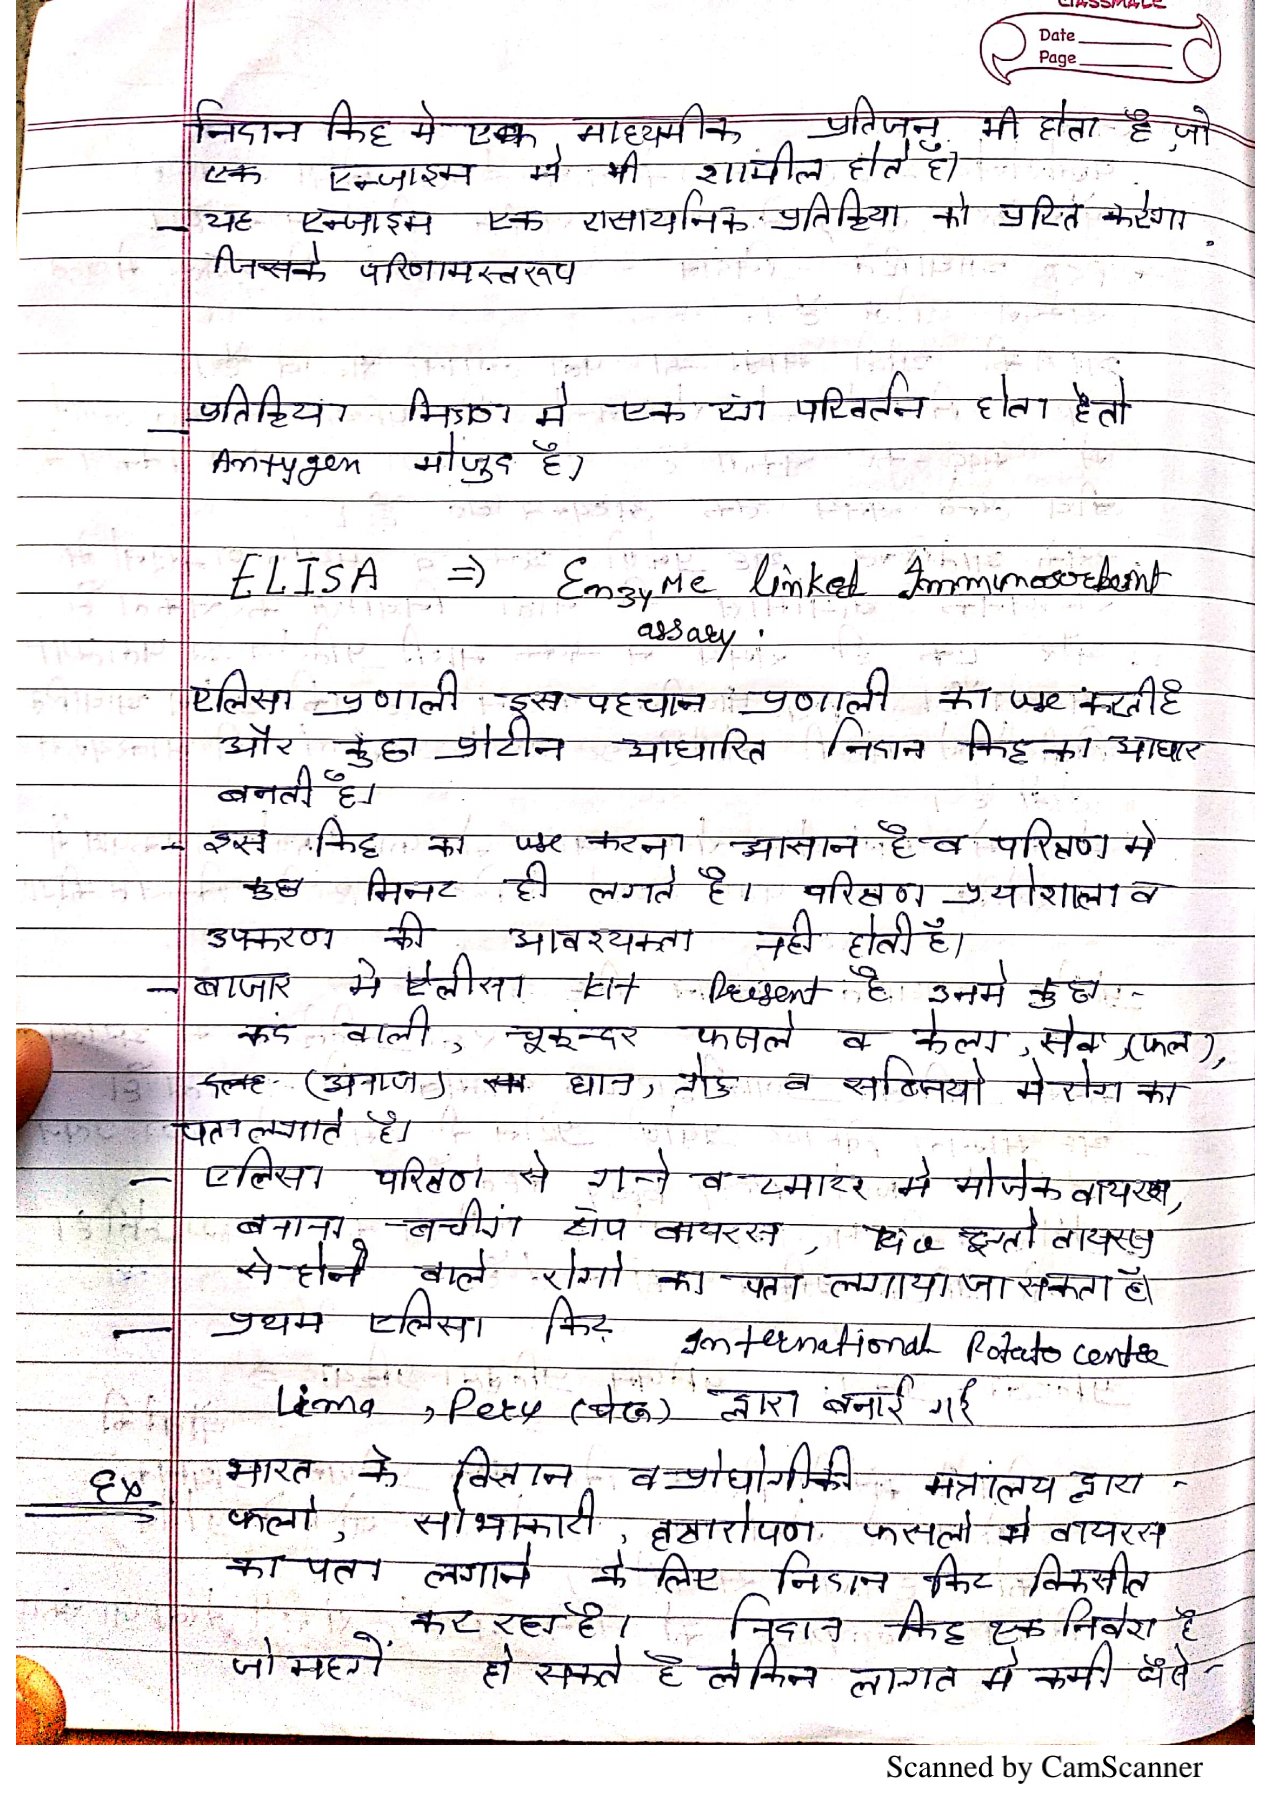 classmate
Date
Page
निदान किट मे एक माध्यमीक प्रतिजन भी होता है, जो
एक एन्जाइम मे भी शामील होते है।
- यह एन्जाइम एक रासायनिक प्रतिक्रिया को प्ररित करेगा
जिसके परिणामस्वरूप
- प्रतिक्रिया मिश्रण मे एक रंग परिवर्तन होता है तो
Antygen मोजुद है।
ELISA => Enzyme linked Immunosorbent
assay.
एलिसा प्रणाली इस पहचान प्रणाली का use करती है
और कुछ प्रोटीन आधारित निदान किट का आधार
बनती है।
- इस किट का use करना आसान है व परिक्षण मे
कुछ मिनट ही लगते है। परिक्षण प्रयोशाला व
उपकरण की आवश्यक्ता नही होती है।
- बाजार मे ऐलीसा kit Present है उनमे कुछ :-
कंद वाली, चूकन्दर फसले व केला, सेब, (फल),
(अनाज) धान, गेहु व सब्जियो मे रोग का
पता लगाते है।
- एलिसा परिक्षण से गन्ने व टमाटर मे मोजेक वायरस,
बनाना बचीग टोप वायरस,
से होने वाले रोगो का पता लगाया जा सकता है।
- प्रथम एलिसा किट International Potato center
Lima, Peru (पेरू) द्वारा बनाई गई
Ex भारत के विज्ञान व प्रोघोगीकी मत्रालय द्वारा -
फलो, सोभाकारी, वृक्षारोपण फसलो मे वायरस
का पता लगाने के लिए निदान किट विकसीत
कर रहा है। निदान किट एक निवेश है
जो महगें हो सकते है लेकिन लागत मे कमी
Scanned by CamScanner